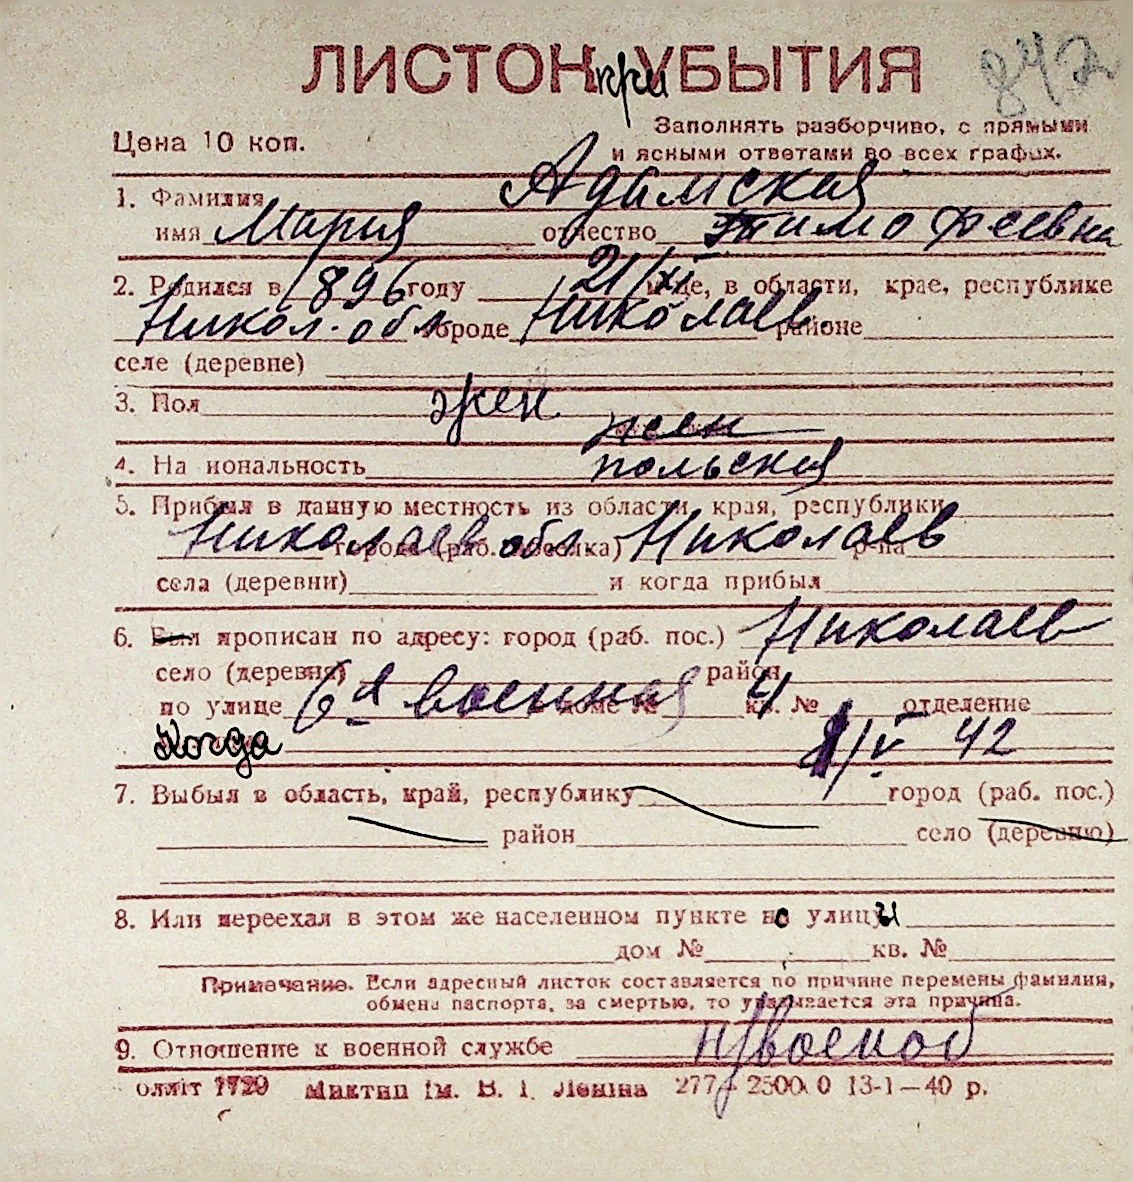 ЛИСТОК при УБЫТИЯ
842
Заполнять разборчиво, с прямыми
Цена 10 коп.
и ясными ответами во всех графах.
1. Фамилия Адамская
имя Мария отчество Тимофеевна
2. Родился в 1896 году 21/XI м-це, в области, крае, республике
Никол. обл. городе Николаев. районе
селе (деревне)
3. Пол жен.
жен
4. На иональность польская
5. Прибыл в данную местность из области, края, республики
Николаев обл города (раб. поселка) Николаев р-на
села (деревни) и когда прибыл
6. Был прописан по адресу: город (раб. пос.) Николаев
село (деревня) район
по улице 6я военная доме № 4 кв. № отделение
Когда 1/V 42
7. Выбыл в область, край, республику город (раб. пос.)
район село (деревню)
8. Или переехал в этом же населенном пункте на улицу
дом № кв. №
Примечание. Если адресный листок составляется по причине перемены фамилии,
обмена паспорта, за смертью, то указывается эта причина.
9. Отношение к военной службе н/военоб
олліт 1729 Миктип ім. В. І. Леніна 277—25000 13-1—40 р.